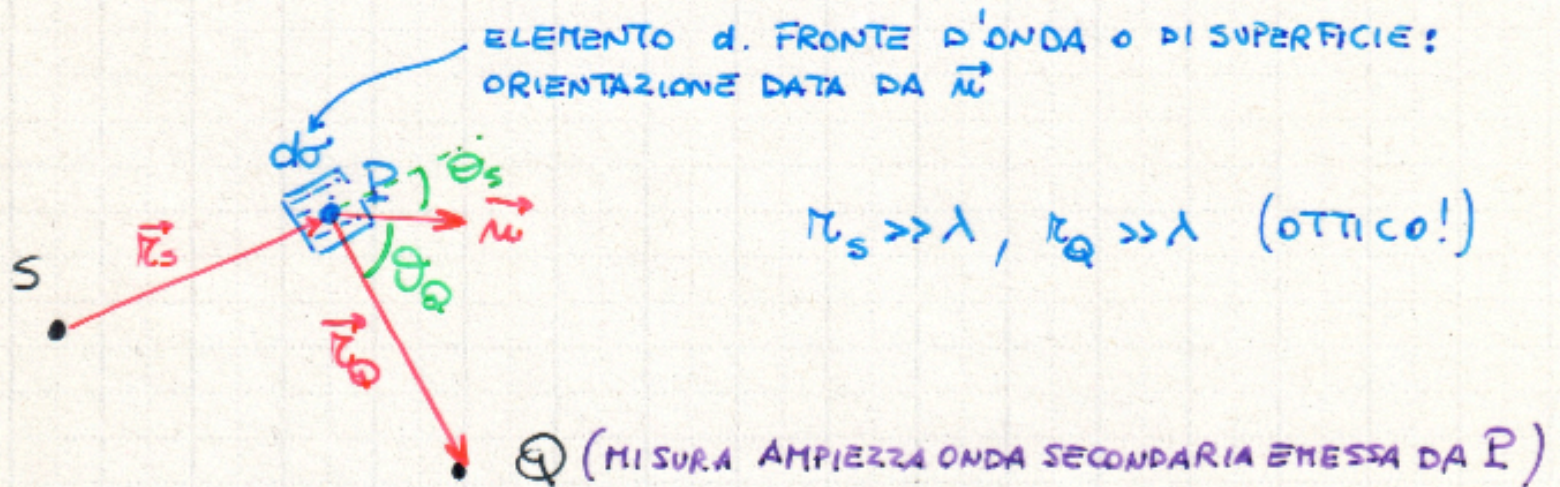 ELEMENTO d. FRONTE D'ONDA O DI SUPERFICIE:
ORIENTAZIONE DATA DA n⃗
dσ
P
θs
n⃗
r⃗s
S
θQ
rs >> λ, rQ >> λ (OTTICO!)
r⃗Q
Q (MISURA AMPIEZZA ONDA SECONDARIA EMESSA DA P)